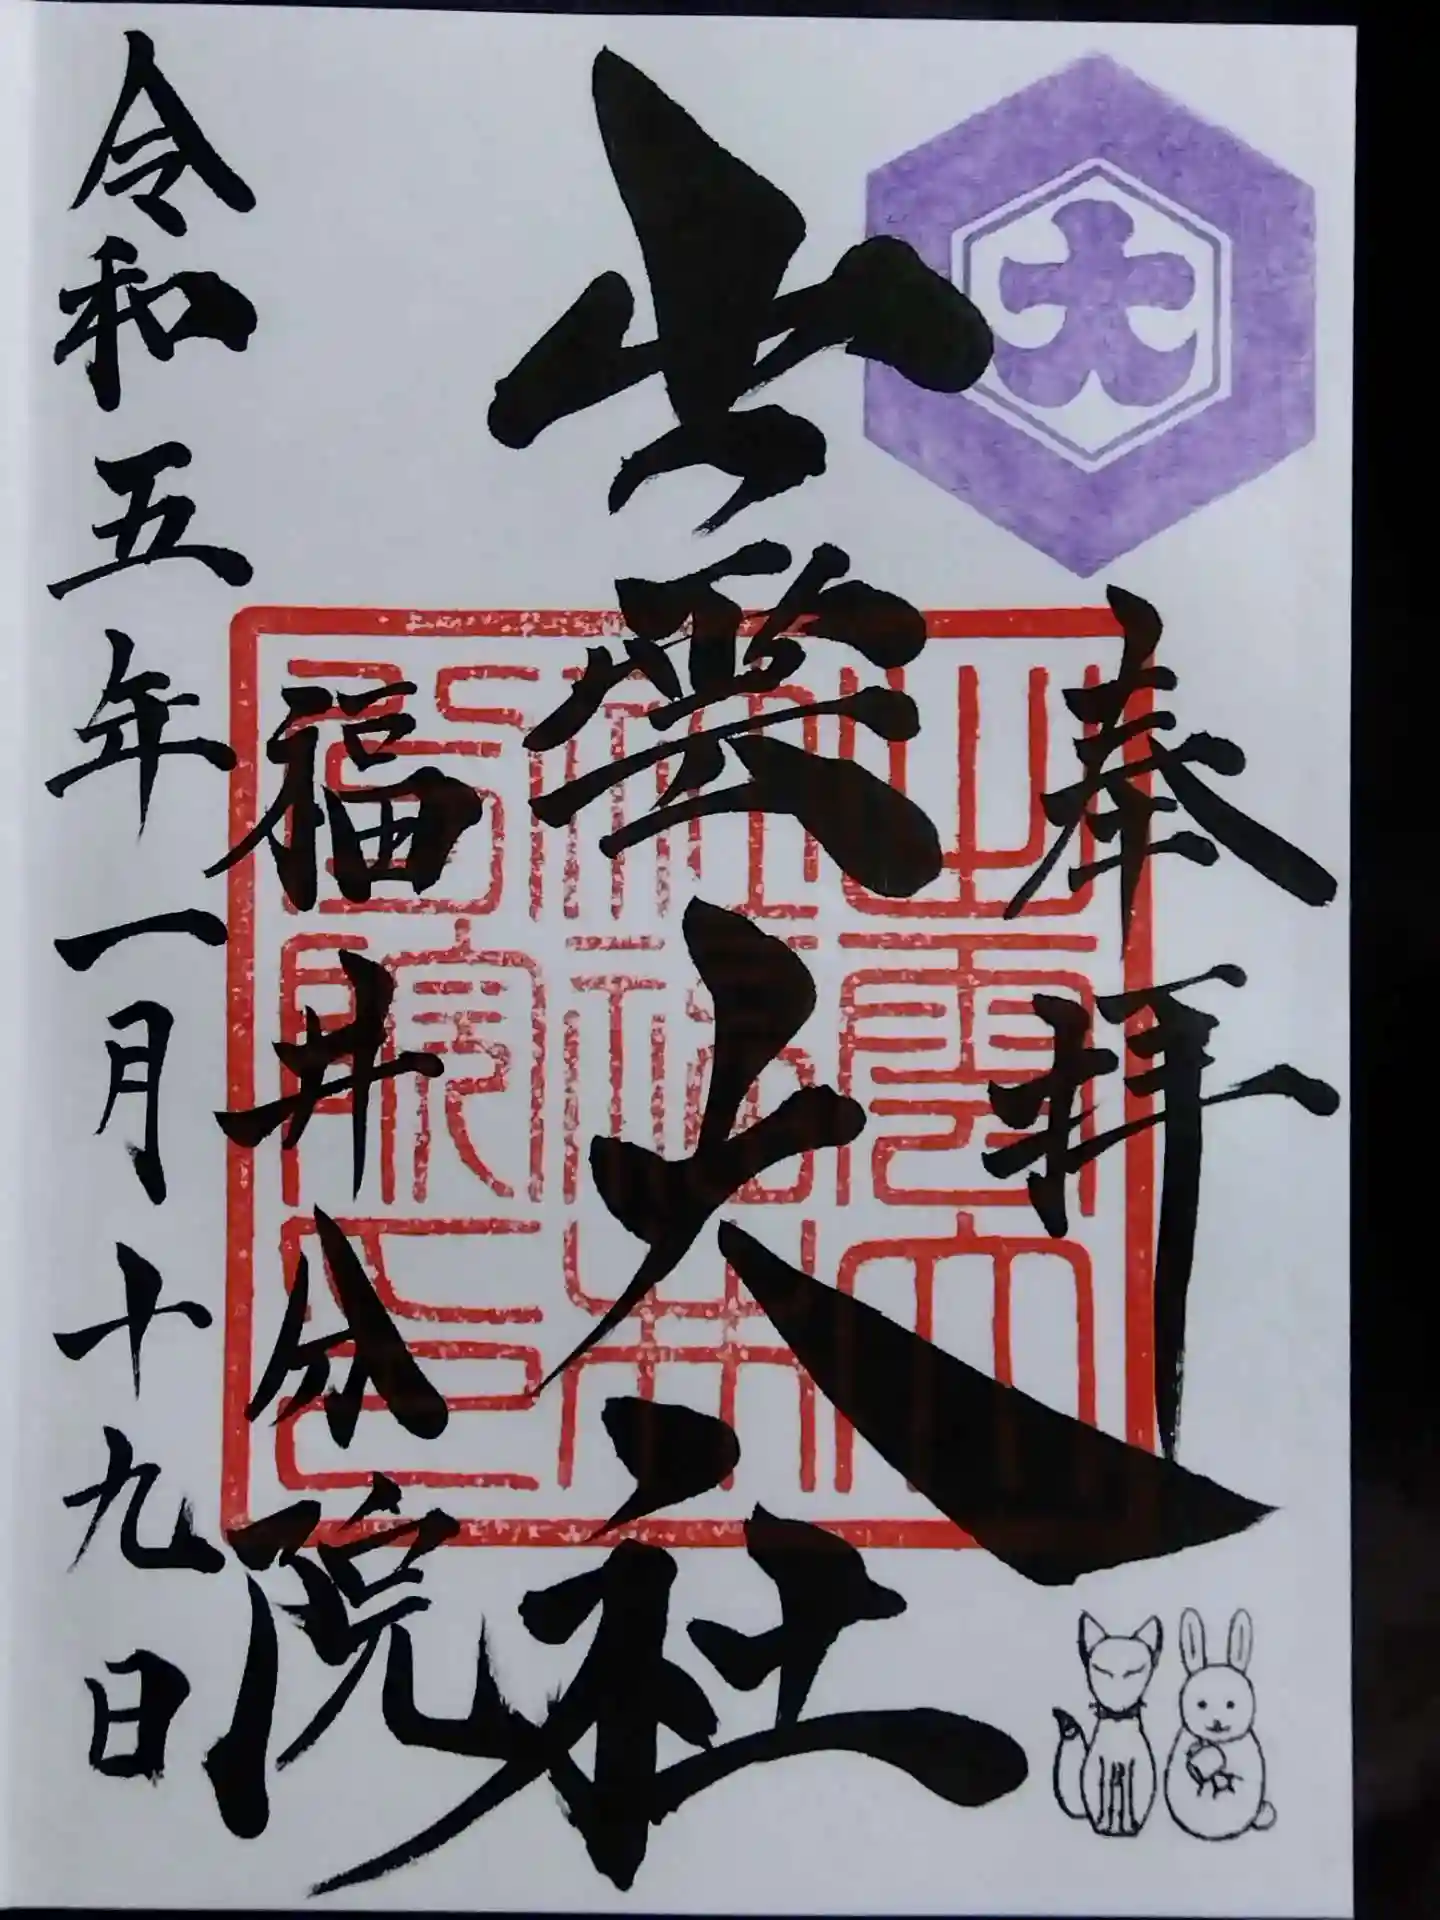 奉拝
出雲大社
福井分院
令和五年一月十九日
出雲大
社福井
分院之印
大